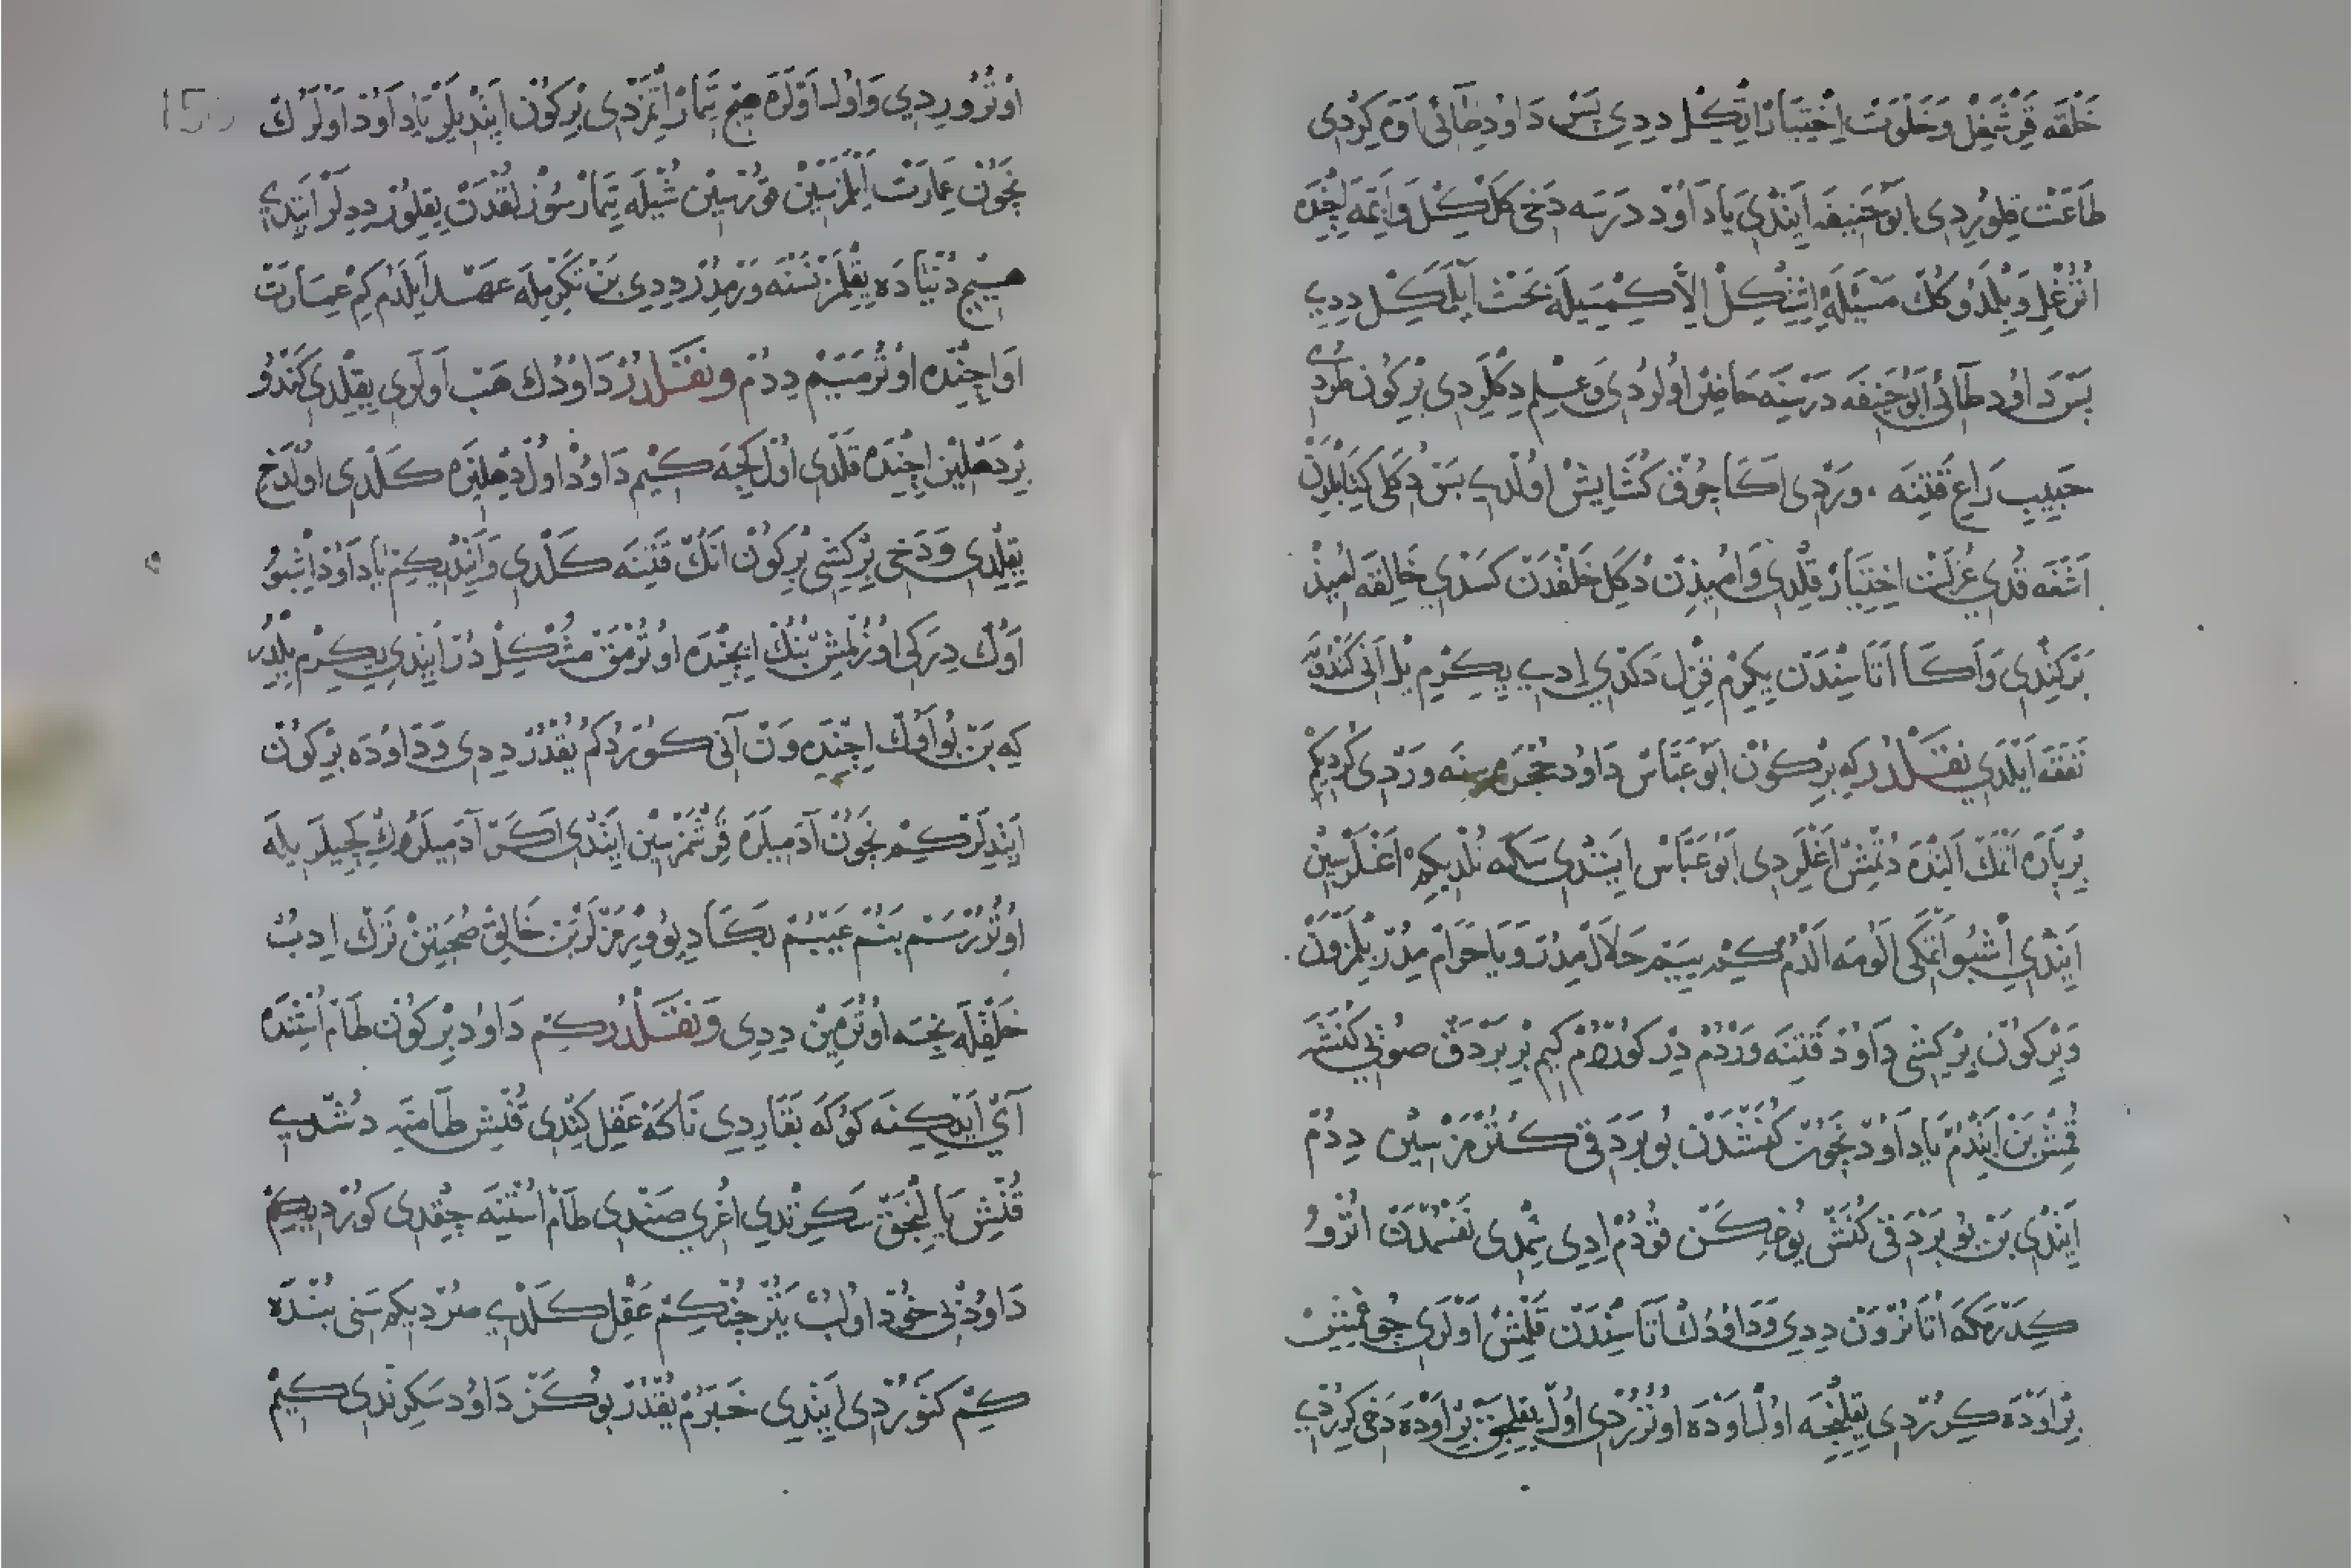 خَلْقَه قَرِشْمَغِلْ وَخَلْوَتْ اِخْتِيَارْ اِتْكِلْ دِدِي پَسْ دَاوُدِ طَائِى اَوَه كِرْدِى
طَاعَتْ قِلوُرِدِى اَبوُ حَنِيفَه اَيِتْدِى يَا دَاوُدْ دَرْسَه دَخِى كَلْكِلْ وَ اَيِمَّه اِچِنْدَه
اُتُرْغِلْ وَ بِلْدُوكُكْ مَسْئَلَه اِيشِتْكِلْ اِلَّا كِمْسَيْلَه بَحْثْ اَيْلَمَكِلْ دِدِى
پَسْ دَاوُدِ طَائِى اَبوُ حَنِيفَه دَرْسِنَه حَاضِرْ اوُلوُرْدِى وَ عِلْمْ دِكْلَرْدِى بِرْكوُنْ طُرْدِى
حَبِيبِ رَاعِى قَتِنَه وَرْدِى اَكَا چوُقْ كُشَايِشْ اوُلْدِى پَسْ دُكَلِى كِتَابْلَرِنْ
اَشَغَه قُدِى عُزْلَتْ اِخْتِيَارْ قِلْدِى وَ اُمِيدِنْ دُكَلِ خَلْقْدَنْ كَسْدِى خَالِقَه اُمِيدْ
بَرْكِتْدِى وَ اَكَا اَتَاسِنْدَنْ يِكِرْمِ قِزِلْ دَكْدِى اِدِى يِكِرْمِ يِلْ اَنِى كَنْدوُيَه
نَفَقَه اَيْلَدِى نَقِلْدُرْ كِه بِرْ كوُنْ اَبوُ عَبَّاسْ دَاوُدْ حُجْرَه سِنَه وَرْدِى كُرْدِكِمْ
بِرْ پَارَه اَتْمَكْ اَلِنْدَه دُتْمِشْ اَغْلَرْدِى اَبوُ عَبَّاسْ اَيِتْدِى سَكَه نُلْدِيكِمْ اَغْلَرْسِينْ
اَيِتْدِى اُشْبوُ اَتْمَكِى اَلوُمَه اَلْدُمْ كِمْ يِيَيِمْ حَلَالْ مِدُرْ وَ يَا حَرَامْ مِدُرْ بِلْمَزْوَنْ
وَ بِرْ كوُنْ بِرْ كِشِى دَاوُدْ قَتِنَه وَرْدُمْ دِرْ كوُرْدُمْ كِيمْ بِرْ بَرْدَقْ صوُيِى كُنَشَه
قُمِشْ بَنْ اَيِتْدُمْ يَا دَاوُدْ نِچوُنْ كُنَشْدَنْ بوُ بَرْدَقِى كُتُرْمَزْسِينْ دِدُمْ
اَيِتْدِى بَنْ بوُ بَرْدَقِى كُنَشْ يوُخِكَنْ قوُدُمْ اِدِى شِمْدِى نَفْسُمْدَنْ اُتْرُو
كِدَرْمَكَه اُتَانُرْوَنْ دِدِى وَ دَاوُدُكْ اَتَاسِنْدَنْ قَلْمِشْ اَوْلَرِى چوُغِمِشْ
بِرْ اَوْدَه كِرُرْدِى يِقِلِنْجَه اوُلْ اَوْدَه اوُتُرُرْدِى اوُلْ يِقِلِجَقْ بِرْ اَوْدَه دَخِى كِرُرْدِى
اوُتُرورِدِى وَ اوُلْ اَوْلَرَه هِيچْ تِمَارْ اِتْمَزْدِى بِرْكوُنْ اَيِتْدِيلَرْ يَا دَاوُدْ اَوْلَرُكْ
نِچوُنْ عِمَارَتْ اَيْلَمَزْسِينْ قوُرْسِينْ شُيْلَه تِمَارْسُوزْلُقْدَنْ يِقِلوُرْ دِدِلَرْ اَيِتْدِى
هِيچْ دُنْيَادَه يِقِلْمَزْ نَسْنَه وَرْمِدُرْ دِدِى بَنْ تَكْرِمِلَه عَهْدْ اَيْلَدُمْ كِمْ عِمَارَتْ
اَوْ اِچِنْدَه اوُتُرْمَيَيِمْ دِدُمْ وَ نَقِلْدُرْ دَاوُدُكْ هَبْ اَوْلَرِى يِقِلْدِى كَنْدُو
بِرْ دِهْلِيزْ اِچِنْدَه قَلْدِى اوُلْ كِجَه كِيمْ دَاوُدْ اوُلْدِ دِهْلِيزَه كَلْدِى اوُلْدَخِى
يِقِلْدِى وَ دَخِى بِرْ كِشِى بِرْكوُنْ اَنُكْ قَتِنَه كَلْدِى وَ اَيِتْدِيكِمْ يَا دَاوُدْ اُشْبوُ
اَوُكْ دِرَكِى اوُزُلْمِشْ بُنُكْ اِيچِنْدَه اوُتُرْمَقْ مُشْكِلْ دُرْ اَيِتْدِى يِكِرْمِ يِلْدُرْ
كِه بَنْ بوُ اَوُكْ اِچِنْدَه وَنْ اَنِى كوُرْدُكُمْ يُقْدُرْ دِدِى وَ دَاوُدَه بِرْكوُنْ
اَيِتْدِلَرْ كِمْ نِچوُنْ آدَمِيلَرَه قَرِشْمَزْسِينْ اَيِتْدِى اَكَرْ آدَمِيلَرُكْ كِچِيلَرِيلَه
اوُتُرُرْسَمْ بَنُمْ عَيْبُمْ بَكَا دِيوُ وِيرْمَزْلَرْ بَنْ خَالِقْ صُحْبَتِنْ تَرْكْ اِدِبْ
خَلْقِلَه نِجَه اوُتُرَيِينْ دِدِى وَ نَقِلْدُرْكِمْ دَاوُدْ بِرْكوُنْ طَامْ اُسْتِنْدَه
آيْ اَيْدِكِنَه كوُكَه بَقَارِدِى نَاكَهْ عَقْلِ كِتْدِى قُكْشِ طَامِنَه دُشْدِى
قُكْشِ يَا لِنْجَقْ سَكِرْتْدِى اُغْرِى صَنْدِى طَامْ اُسْتِنَه چِقْدِى كوُرْدِيكِمْ
دَاوُدْ بِى خوُدْ اوُلُبْ يَتُرْ چُنْكِمْ عَقْلِ كَلْدِى صُرْدِيكِمْ سَنِى بُنْدَه
كِمْ كَتوُرْدِى اَيِتْدِى خَبَرُمْ يُقْدُرْ بوُ كَزْ دَاوُدْ سَكِرْتْدِى كِيمْ